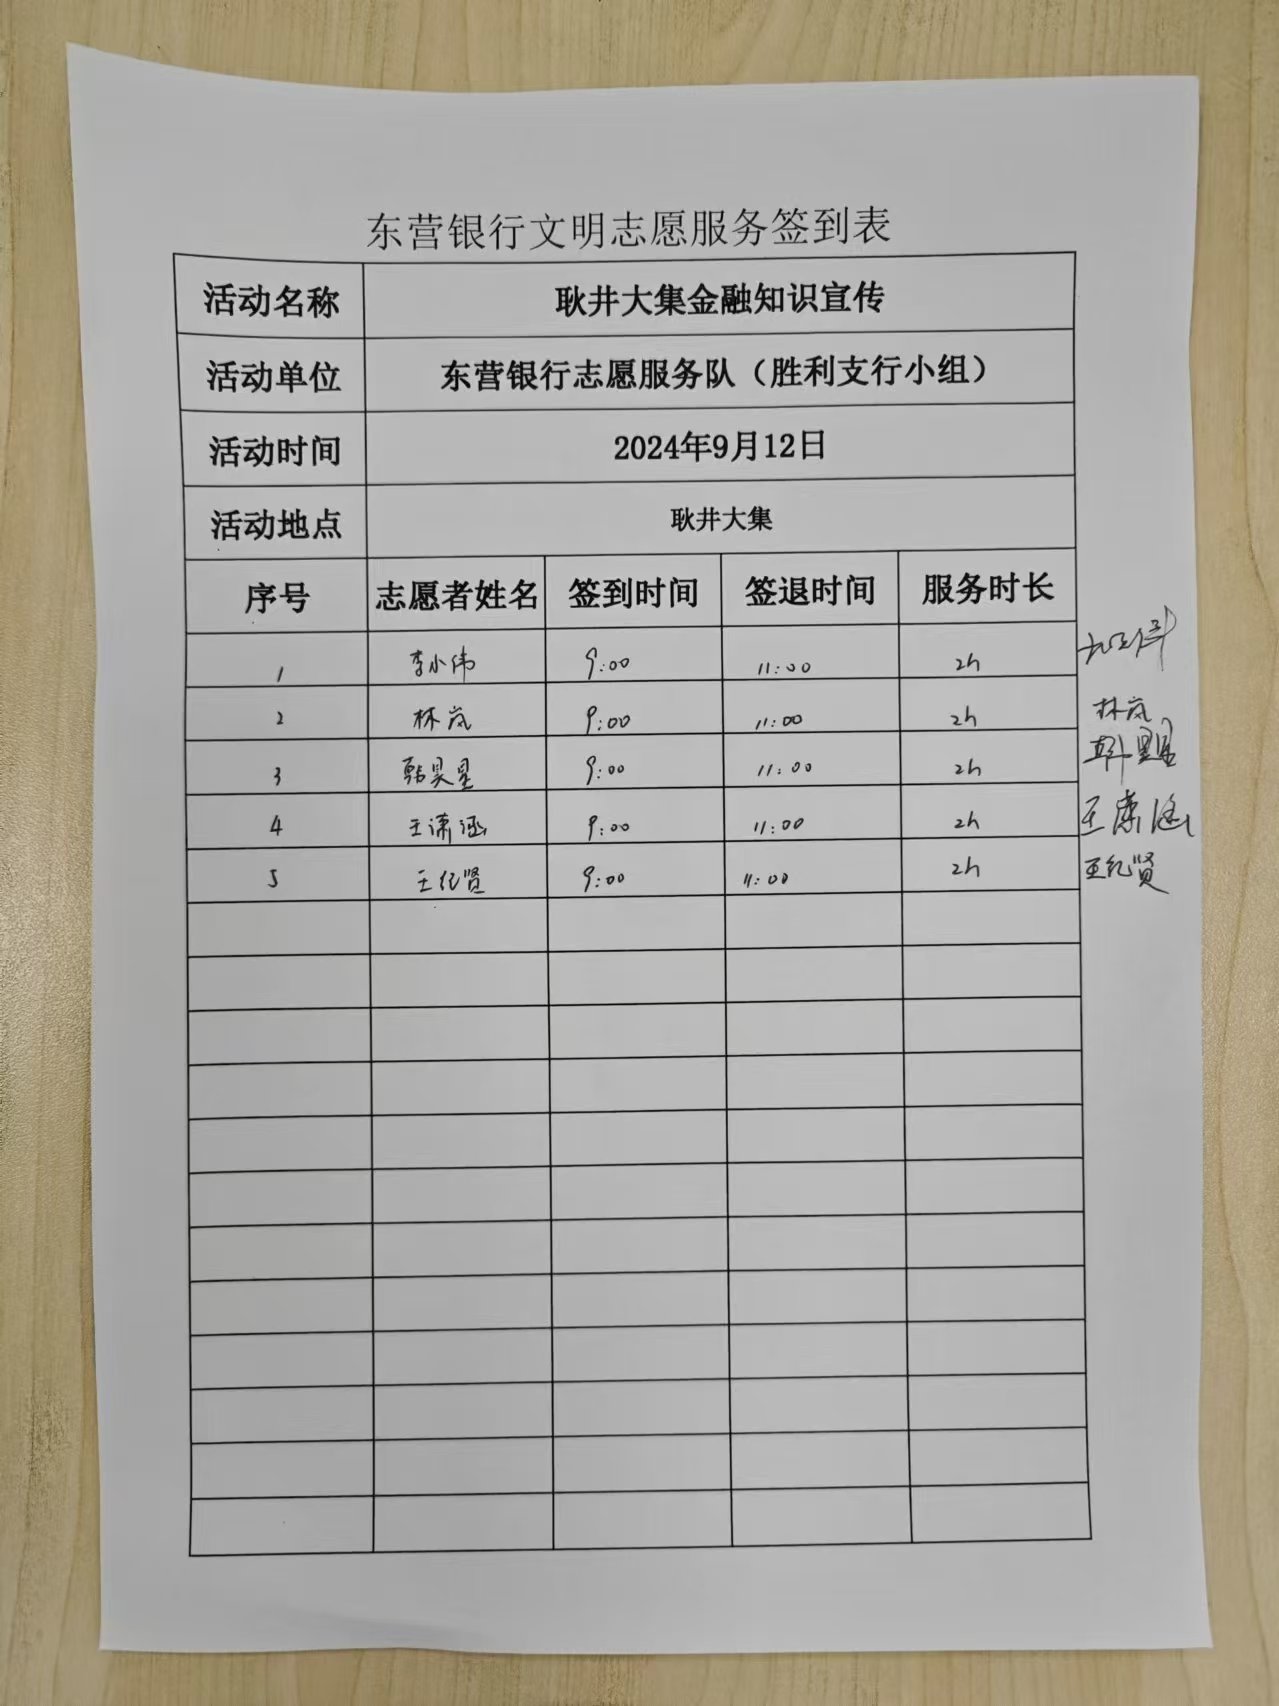 东营银行文明志愿服务签到表
活动名称 耿井大集金融知识宣传
活动单位 东营银行志愿服务队（胜利支行小组）
活动时间 2024年9月12日
活动地点 耿井大集
序号 志愿者姓名 签到时间 签退时间 服务时长
1 李小伟 9:00 11:00 2h
2 林岚 9:00 11:00 2h 林岚
3 韩昊星 9:00 11:00 2h
4 王潇涵 9:00 11:00 2h 王潇涵
5 王纪贤 9:00 11:00 2h 王纪贤